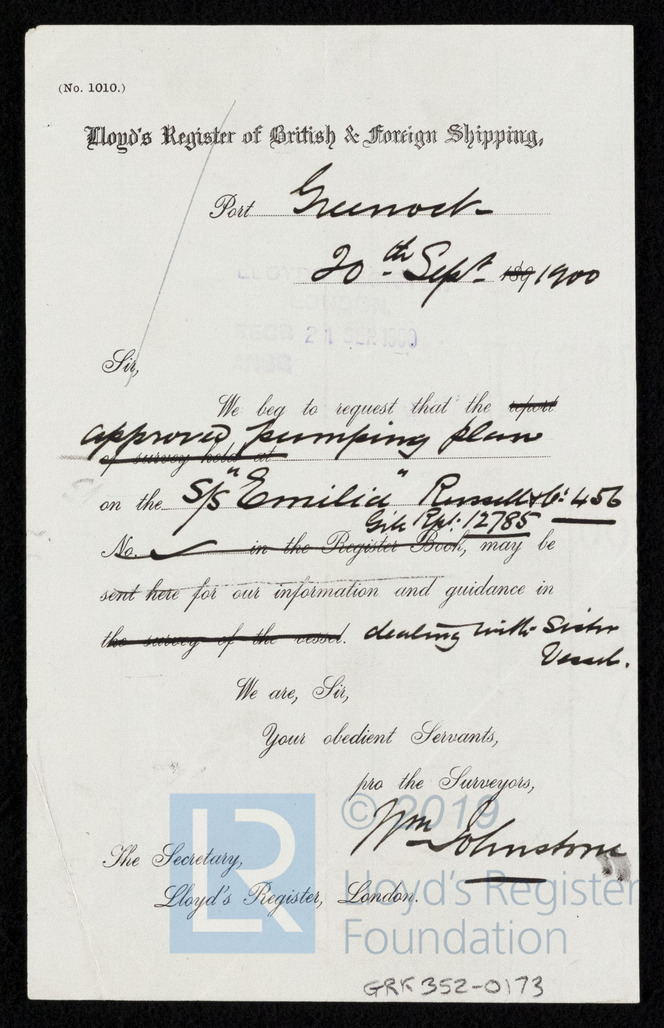 (No. 1010.)
Lloyd's Register of British & Foreign Shipping,
Port Greenock
20th Sept 189 1900
LONDON.
21 SEP 1900
Sir,
We beg to request that the report
approved pumping plan
of survey held at
on the S/S "Emilia" Russell & Co: 456
Gik Rpt: 12785
No. in the Register Book, may be
sent here for our information and guidance in
the survey of the vessel. dealing with Sister
Vessel.
We are, Sir,
Your obedient Servants,
pro the Surveyors,
© 2019
Wm Johnstone
The Secretary,
Lloyd's Register, London.
LR
Lloyd's Register
Foundation
GRK 352-0173